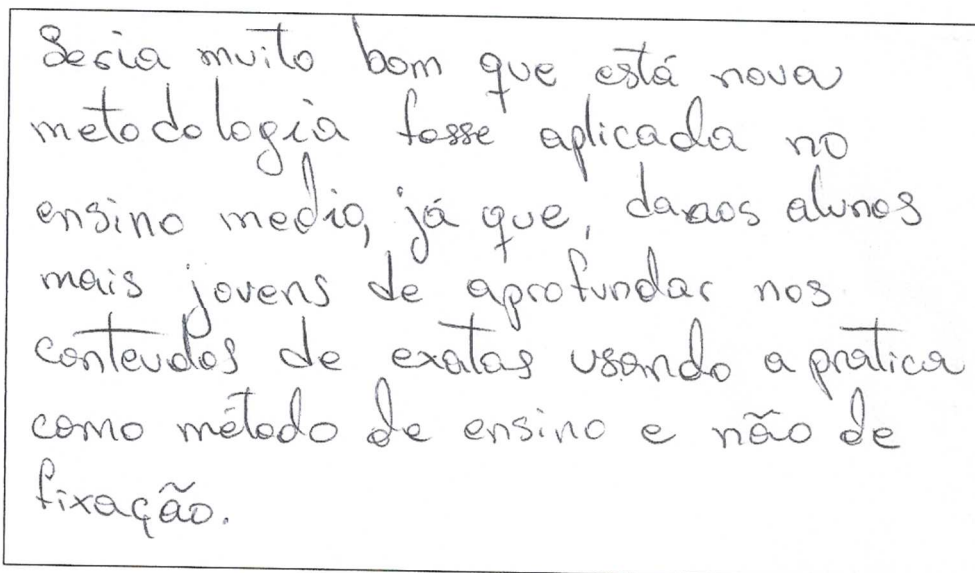 Seria muito bom que está nova
metodologia fosse aplicada no
ensino medio, já que, daraos alunos
mais jovens de aprofundar nos
conteudos de exatas usando a pratica
como método de ensino e não de
fixação.